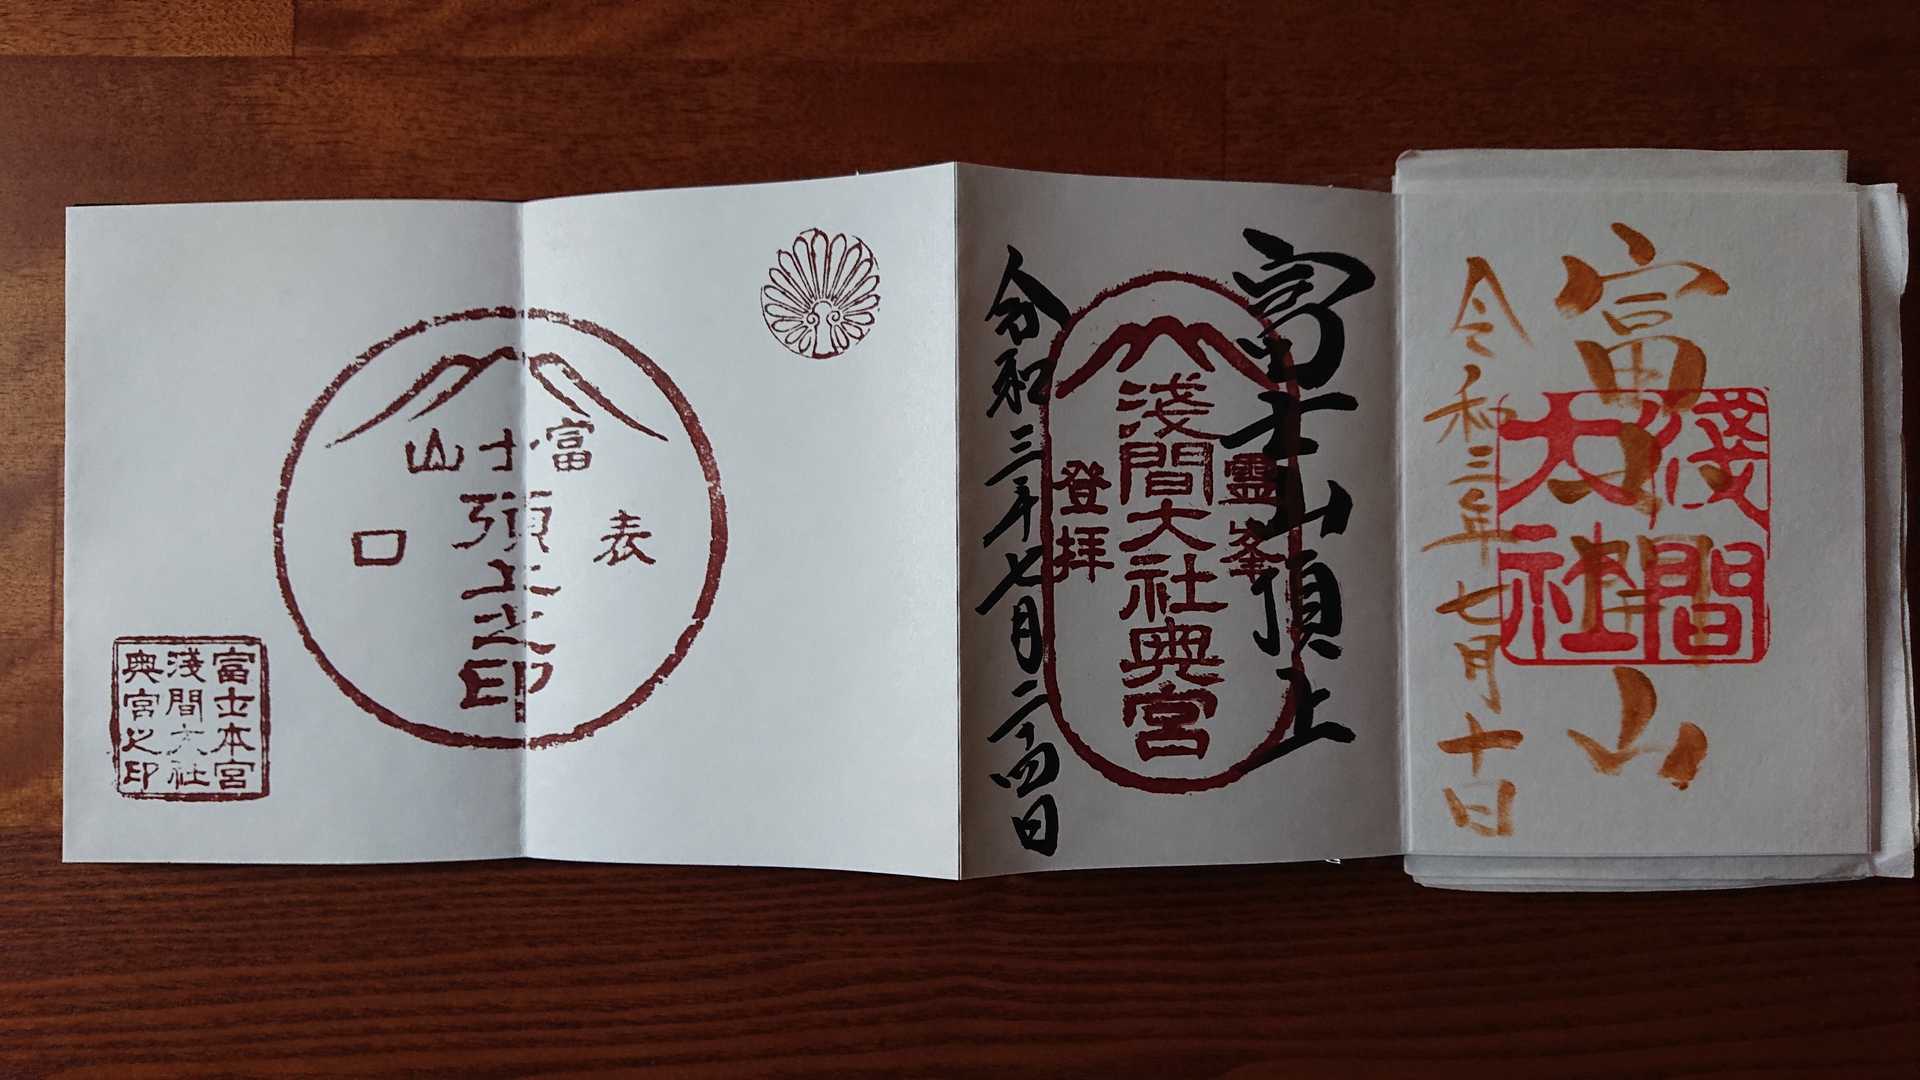 富
山
淺間
大社
令和三年七月十日
富士山頂上
霊峯
淺間大社奥宮
登拝
令和三年七月二十四日
富士山
表
頂上之印
口
富士本宮
淺間大社
奥宮之印